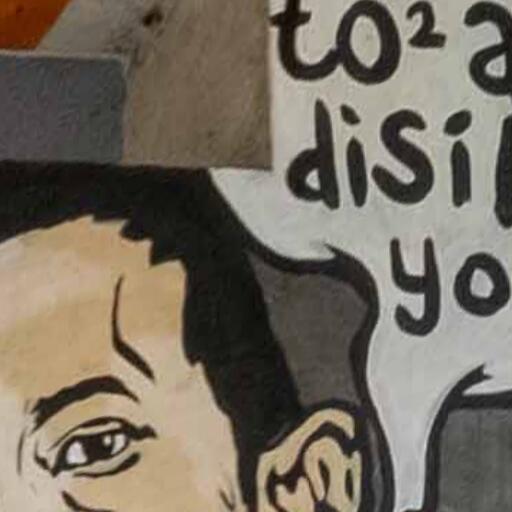 to²
disi
yo